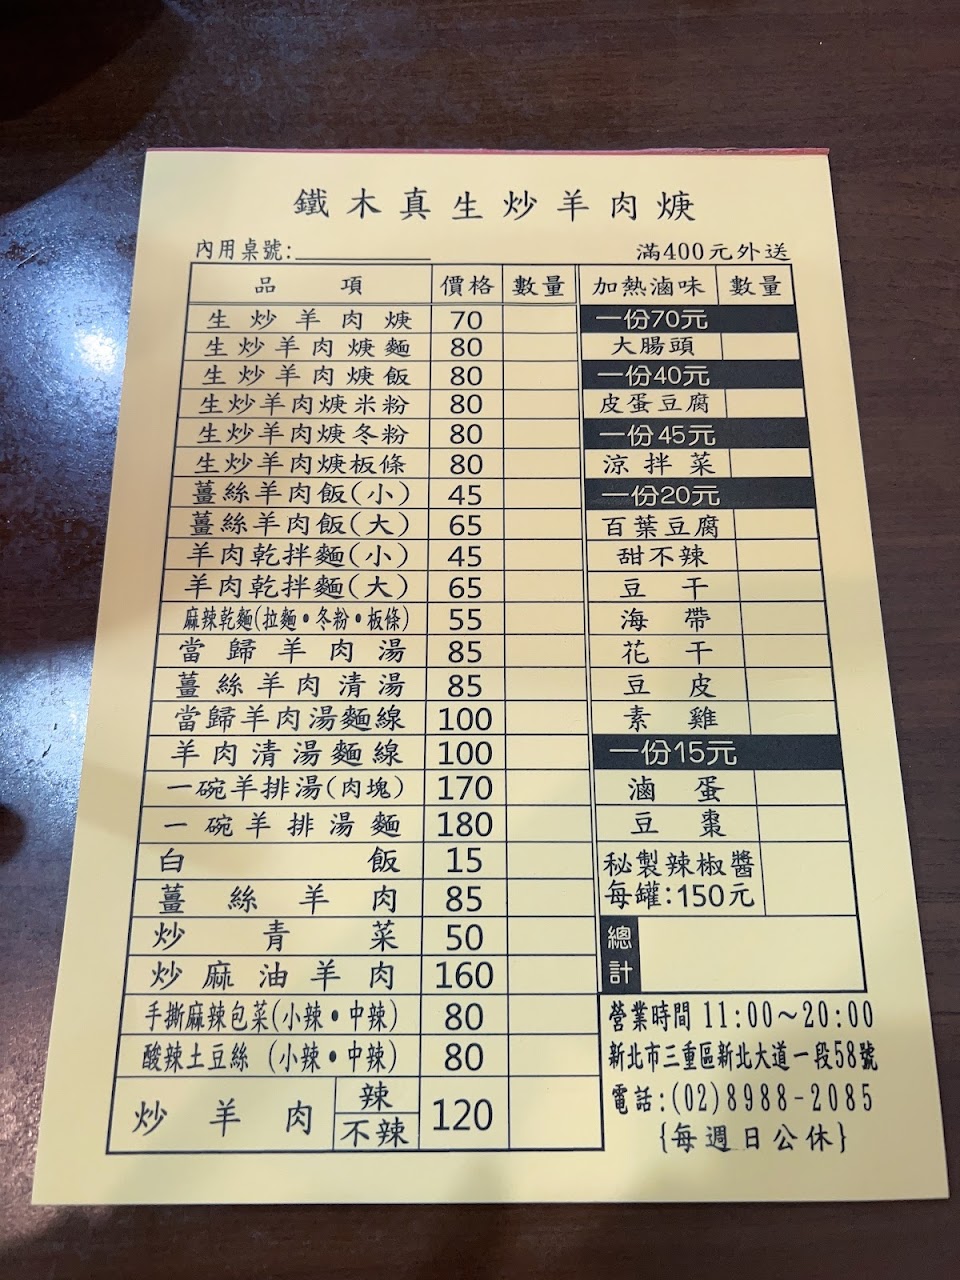 鐵木真生炒羊肉焿
內用桌號:
滿400元外送
品項 價格 數量
生炒羊肉焿 70
生炒羊肉焿麵 80
生炒羊肉焿飯 80
生炒羊肉焿米粉 80
生炒羊肉焿冬粉 80
生炒羊肉焿板條 80
薑絲羊肉飯(小) 45
薑絲羊肉飯(大) 65
羊肉乾拌麵(小) 45
羊肉乾拌麵(大) 65
麻辣乾麵(拉麵•冬粉•板條) 55
當歸羊肉湯 85
薑絲羊肉清湯 85
當歸羊肉湯麵線 100
羊肉清湯麵線 100
一碗羊排湯(肉塊) 170
一碗羊排湯麵 180
白飯 15
薑絲羊肉 85
炒青菜 50
炒麻油羊肉 160
手撕麻辣包菜(小辣•中辣) 80
酸辣土豆絲 (小辣•中辣) 80
炒羊肉 辣 不辣 120
加熱滷味 數量
一份70元
大腸頭
一份40元
皮蛋豆腐
一份45元
涼拌菜
一份20元
百葉豆腐
甜不辣
豆干
海帶
花干
豆皮
素雞
一份15元
滷蛋
豆棗
秘製辣椒醬
每罐:150元
總計
營業時間 11:00~20:00
新北市三重區新北大道一段58號
電話:(02)8988-2085
{每週日公休}